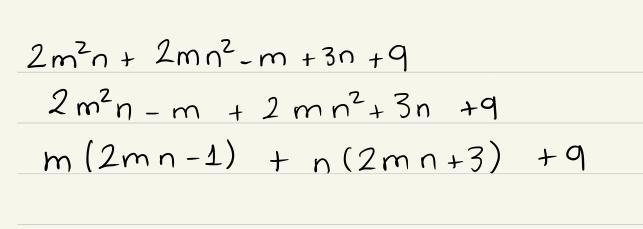 2m²n + 2mn² - m + 3n + 9
2m²n - m + 2mn² + 3n + 9
m(2mn - 1) + n(2mn + 3) + 9